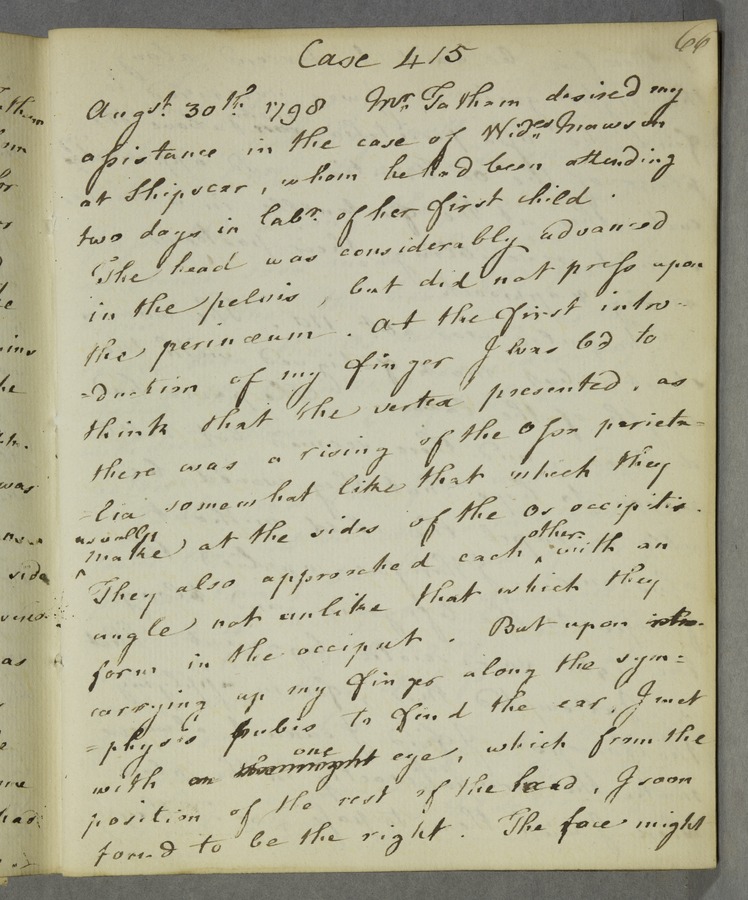 66
Case 415
Augst. 30th. 1798 Mr. Tatham desired my
assistance in the case of Widw. Mawson
at Shipscar, whom he had been attending
two days in labr. of her first child.
The head was considerably advanced
in the pelvis, but did not press upon
the perinæum. At the first intro-
=duction of my finger I was led to
think that the vertex presented, as
there was a rising of the ossa parieta=
=lia somewhat like that which they
usually
make at the sides of the os occipitis.
They also approached each other with an
angle not unlike that which they
form in the occiput. But upon intro-
carrying up my finger along the sym=
=physis pubis to find the ear, I met
with an one eye, which from the
position of the rest of the head, I soon
found to be the right. The face might